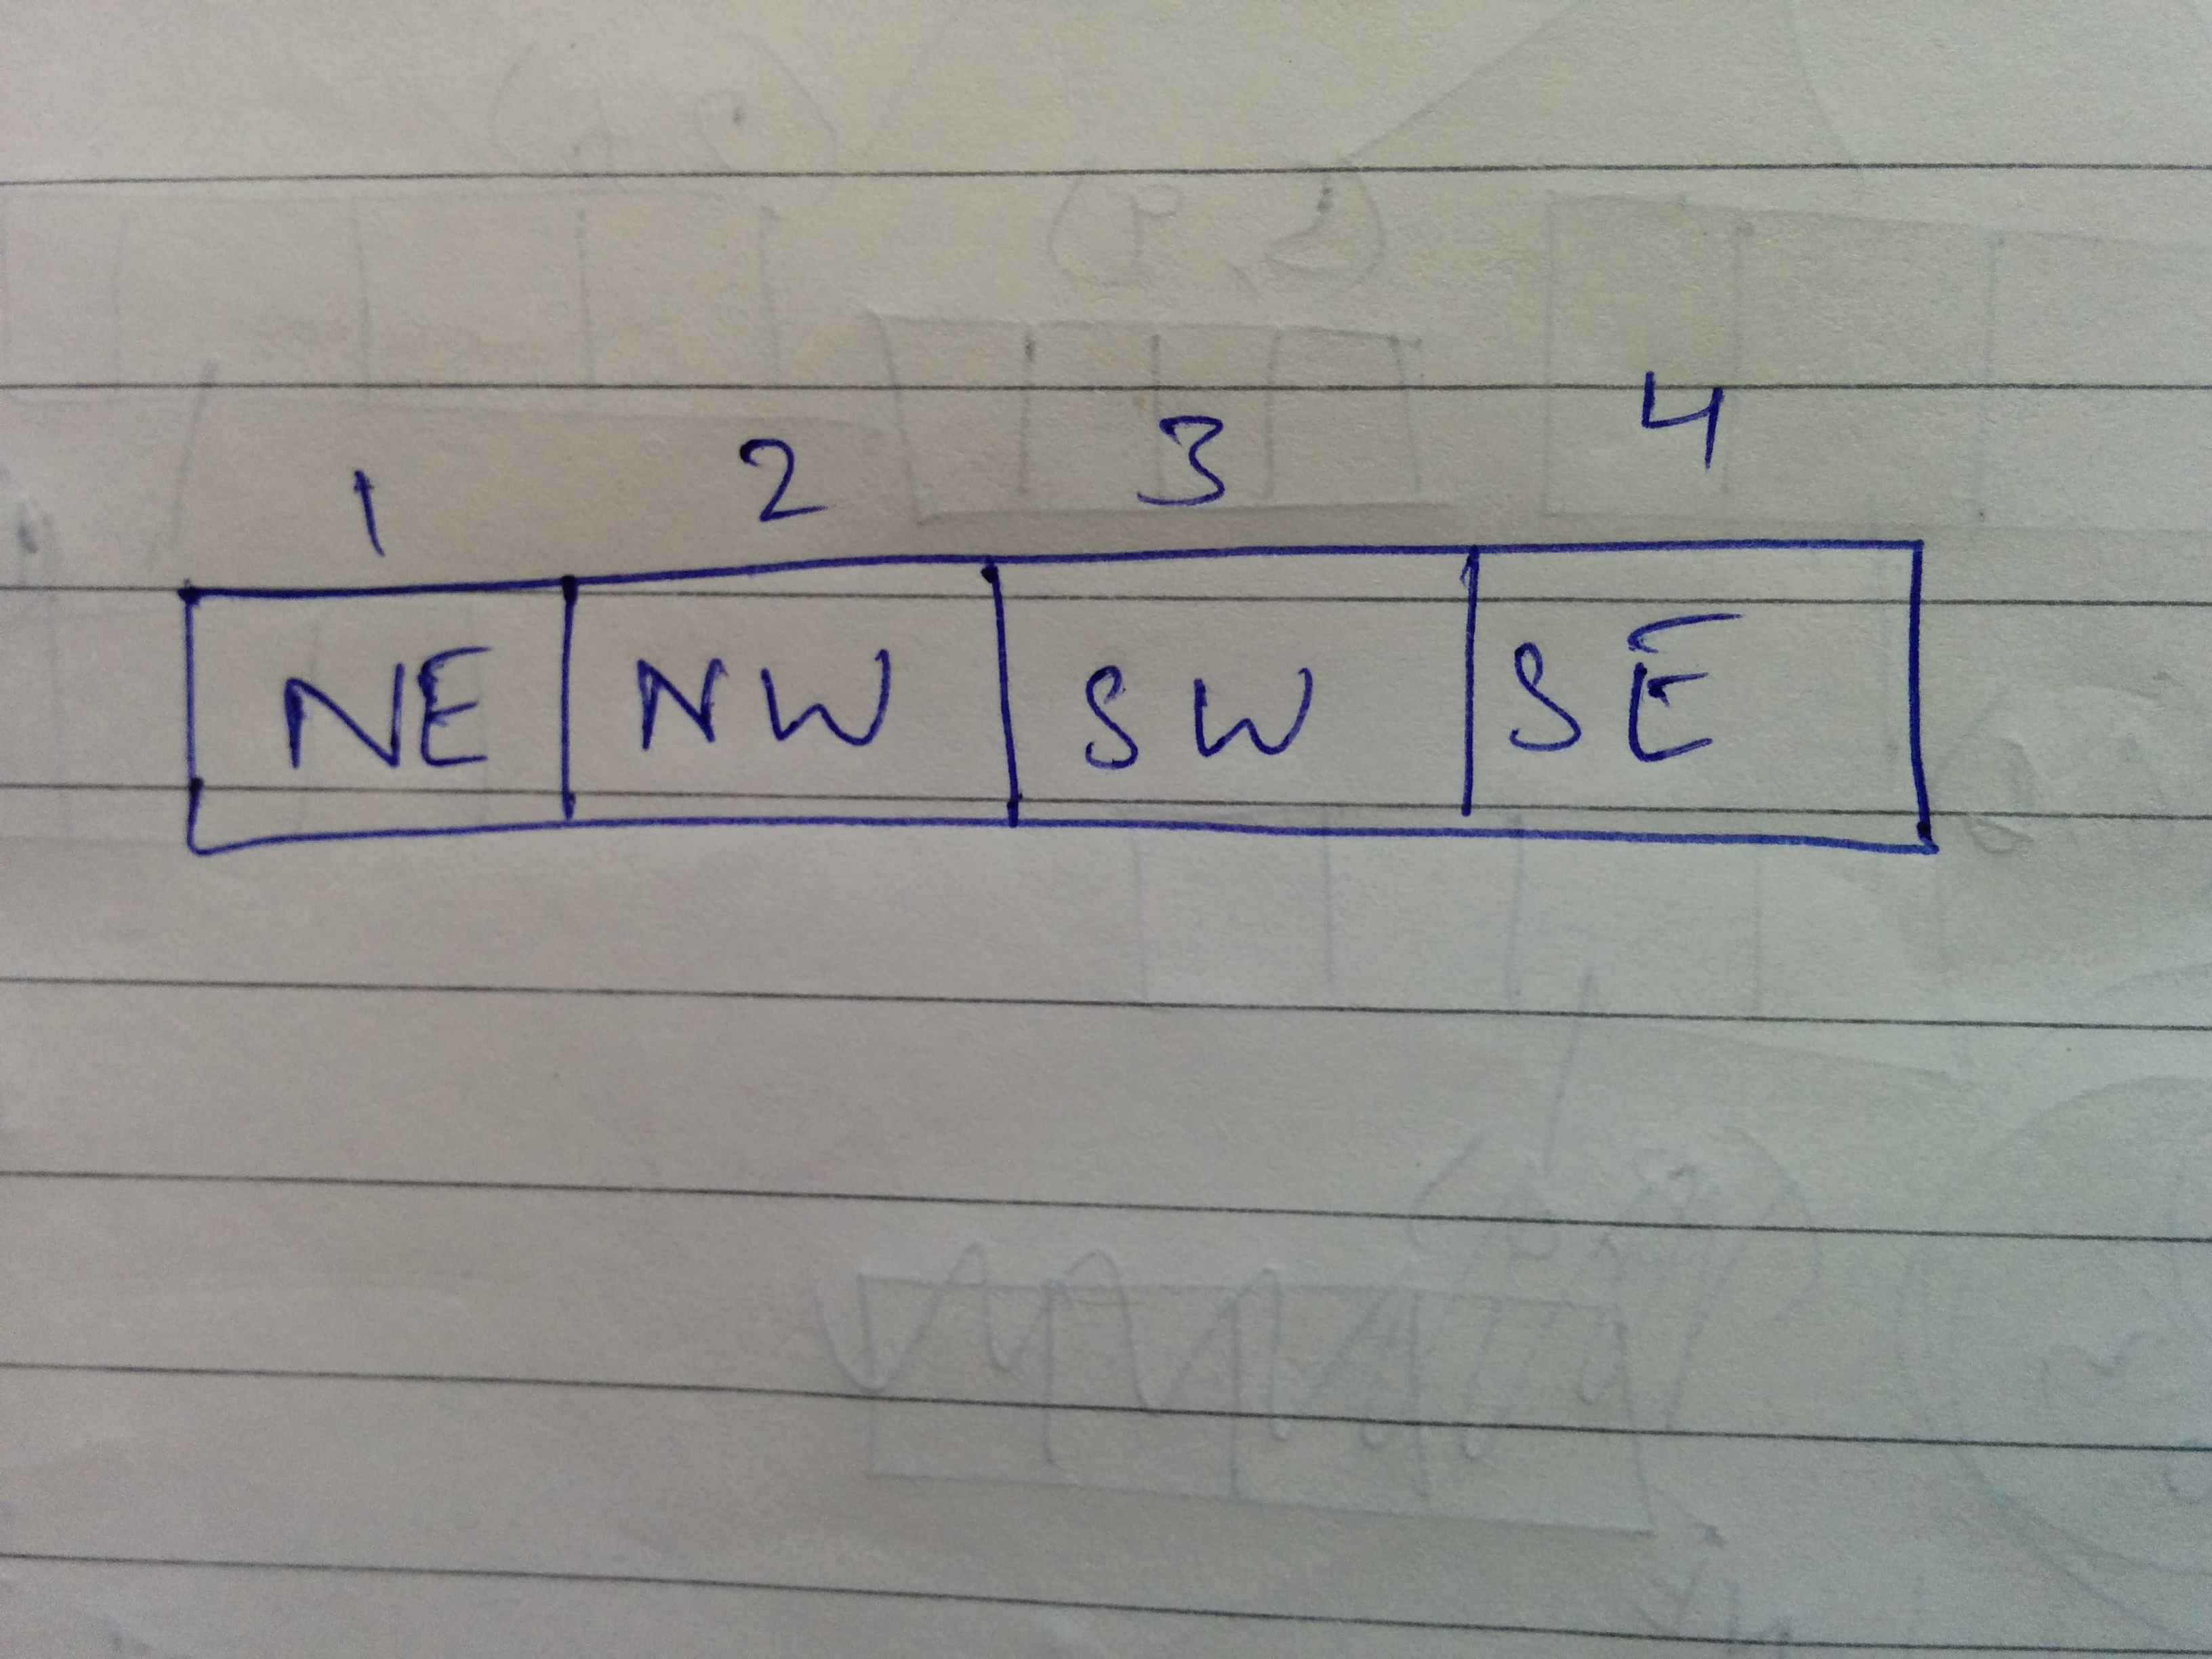 1 2 3 4
NE NW SW SE